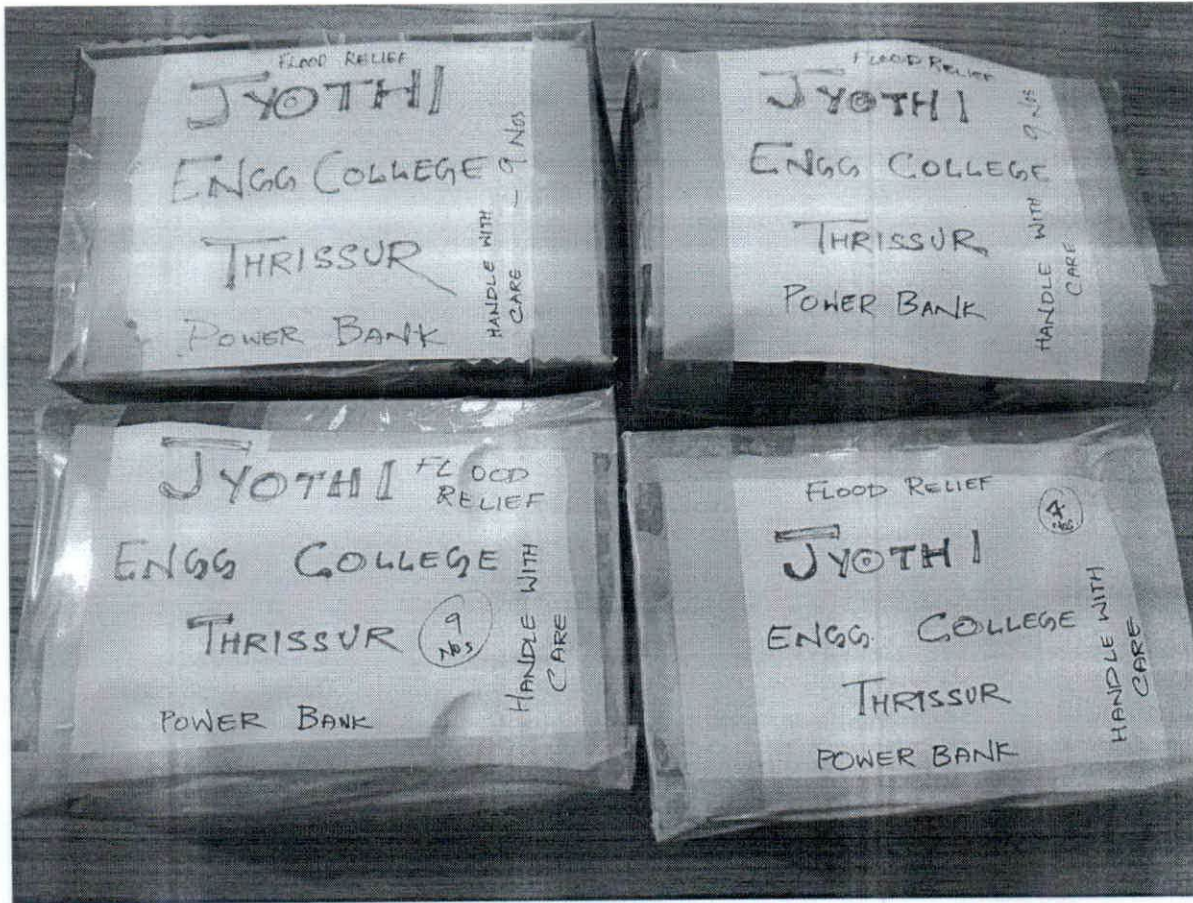 FLOOD RELIEF
JYOTHI
ENGG COLLEGE
THRISSUR
POWER BANK
HANDLE WITH
CARE - 9 NOS
FLOOD RELIEF
JYOTHI
ENGG COLLEGE
THRISSUR
POWER BANK
HANDLE WITH
CARE 9 NOS
JYOTHI
FLOOD
RELIEF
ENGG COLLEGE
THRISSUR
9
NOS
POWER BANK
HANDLE WITH
CARE
FLOOD RELIEF
4
NOS
JYOTHI
ENGG. COLLEGE
THRISSUR
POWER BANK
HANDLE WITH
CARE